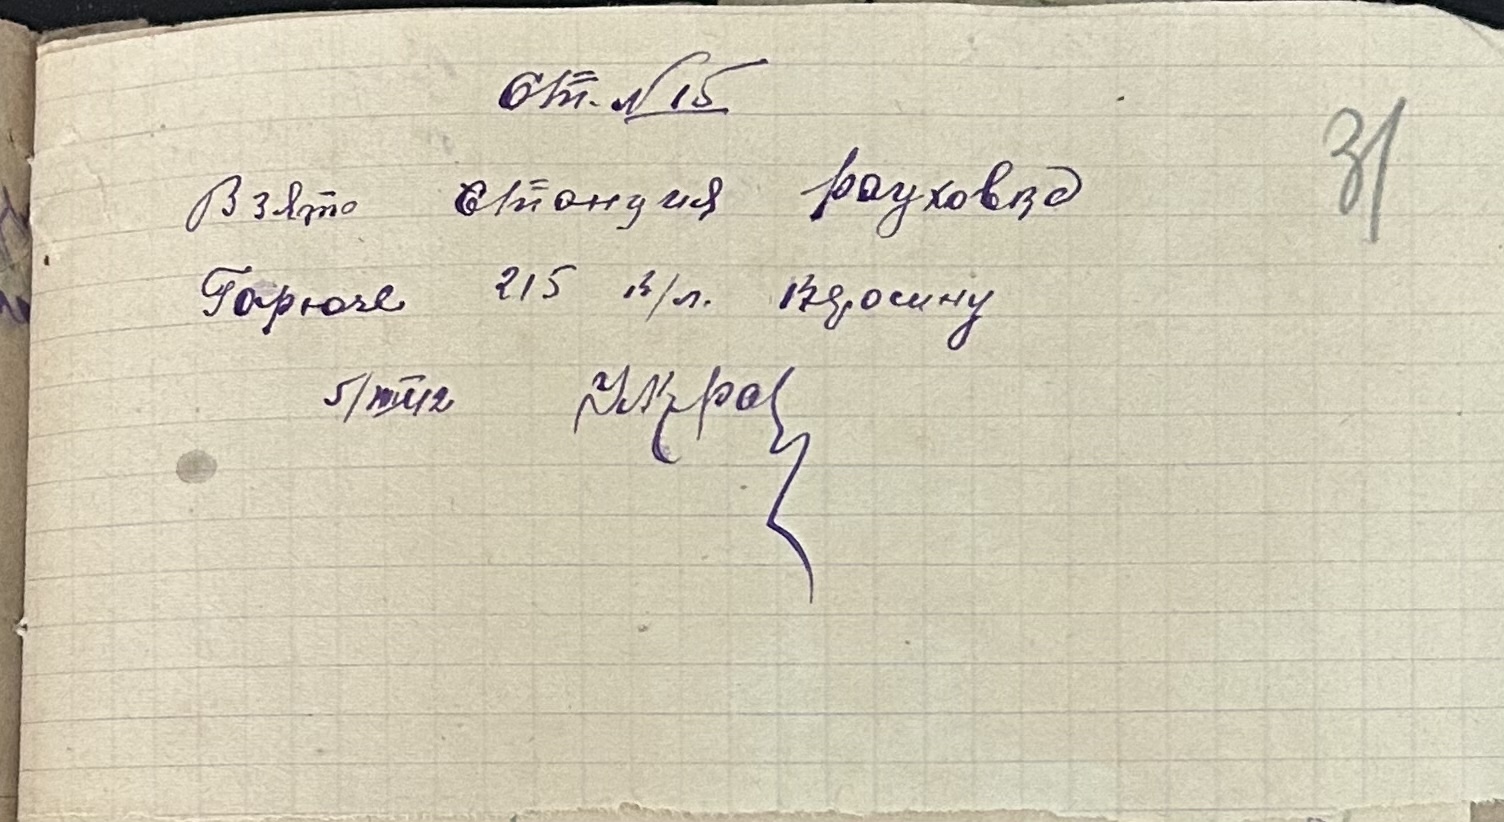 Ст. №15
31
Взято станция Рауховка
Горюче 215 к/л. керосину
5/VIII 42